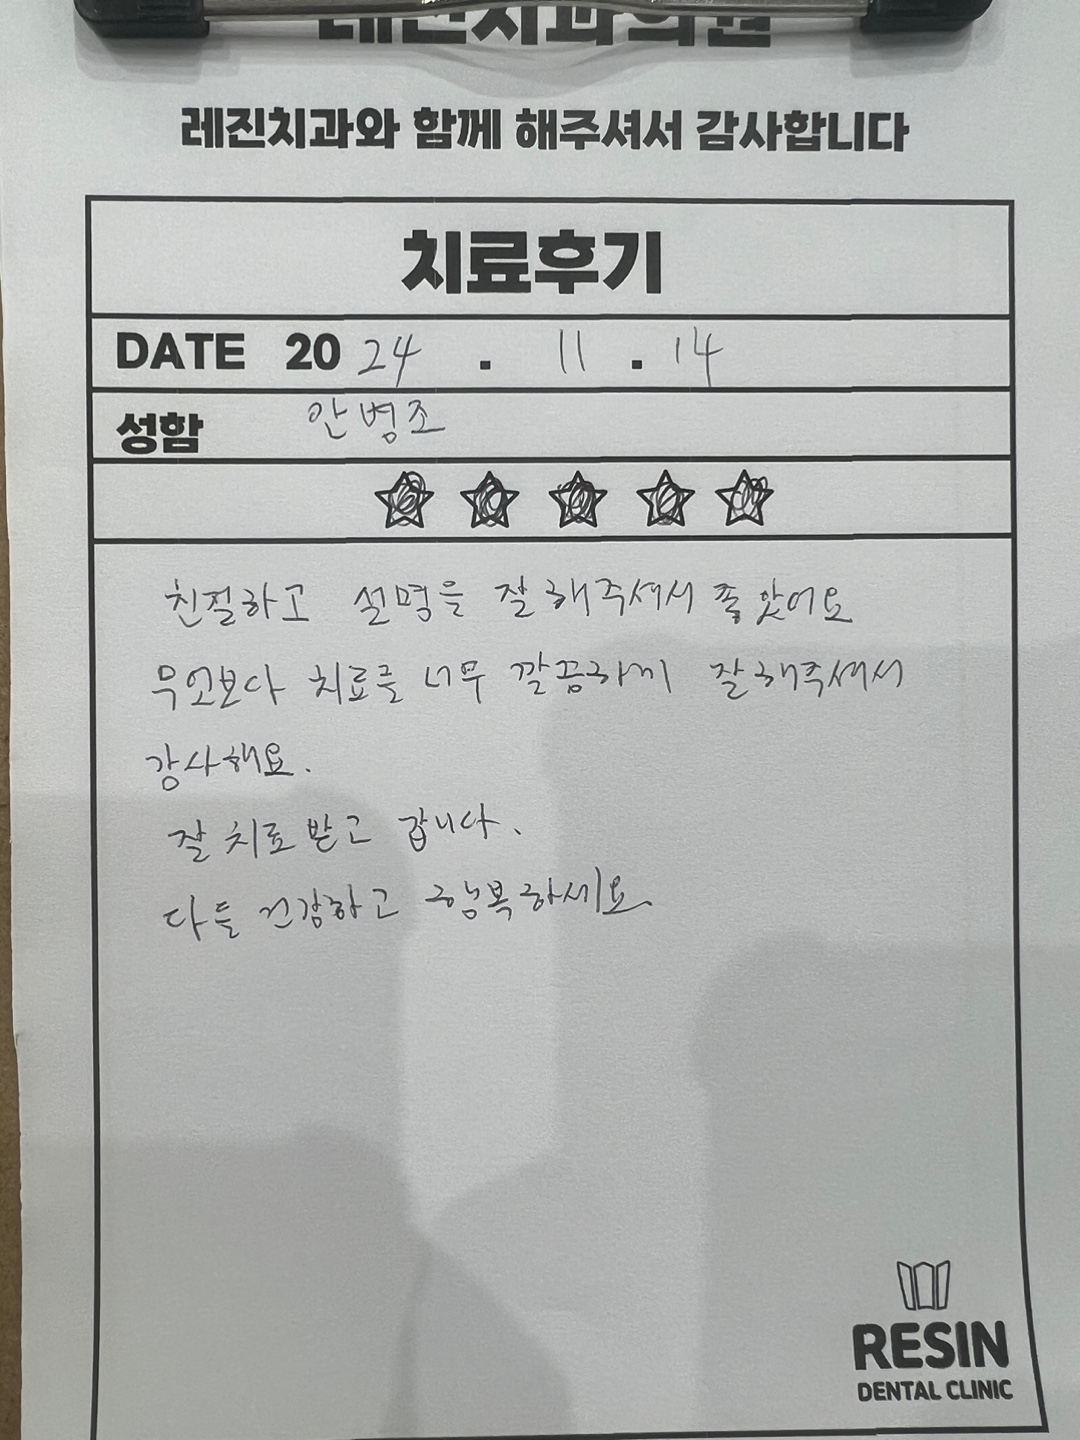 레진치과의원
레진치과와 함께 해주셔서 감사합니다
치료후기
DATE 2024 . 11 . 14
성함 안병조
친절하고 설명을 잘해주셔서 좋았어요
무엇보다 치료를 너무 깔끔하게 잘해주셔서
감사해요.
잘 치료받고 갑니다.
다들 건강하고 행복하세요.
RESIN
DENTAL CLINIC